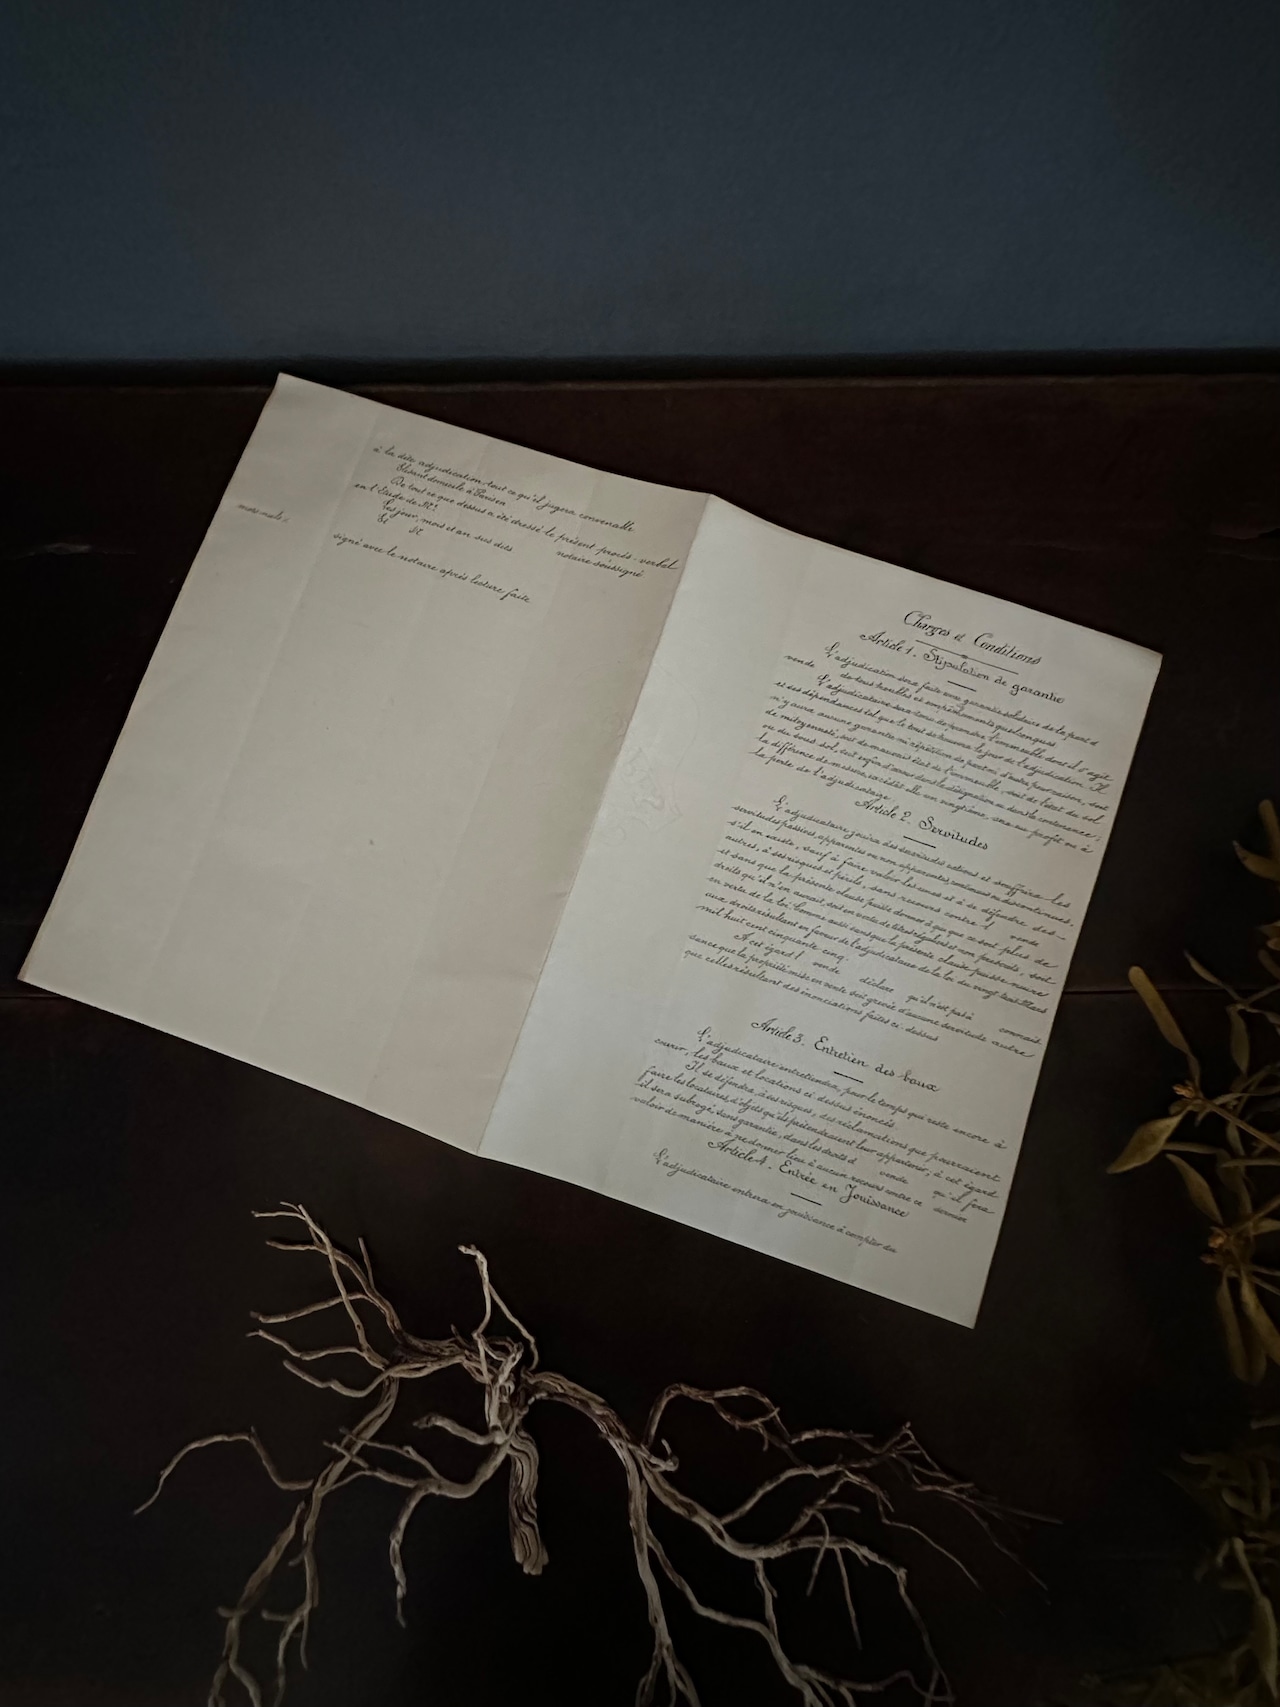 à la dite adjudication tout ce qu'il jugera convenable
Élisant domicile à
De tout ce que dessus a été dressé le présent procès-verbal
en l'Etude de Me
notaire soussigné
Les jour, mois et an sus dits
Et
M
signé avec le notaire après lecture faite
mots nuls
Charges et Conditions
Article 1. Stipulation de garantie
L'adjudication sera faite sous garantie solidaire de la part d
vende de tous troubles et empêchements quelconques
L'adjudicataire sera tenu de prendre l'immeuble dont il s'agit
et ses dépendances tel que le tout se trouvera le jour de l'adjudication. Il
n'y aura aucune garantie ni répétition de part ni d'autre pour raison, soit
de mitoyenneté, soit de mauvais état de l'immeuble, soit de l'état du sol
ou du sous-sol, soit enfin d'erreur dans la désignation ou dans la contenance;
la différence de mesure, excédât-elle un vingtième, sera au profit ou à
la perte de l'adjudicataire
Article 2. Servitudes
L'adjudicataire jouira des servitudes actives et souffrira les
servitudes passives, apparentes ou non apparentes, continues ou discontinues,
s'il en existe, sauf à faire valoir les unes et à se défendre des
autres, à ses risques et périls, sans recours contre l vende
et sans que la présente clause puisse donner à qui que ce soit plus de
droits qu'il n'en aurait, soit en vertu de titres réguliers et non prescrits, soit
en vertu de la loi. Comme aussi sans que la présente clause puisse nuire
aux droits résultant en faveur de l'adjudicataire de la loi du vingt trois Mars
mil huit cent cinquante cinq.
A cet égard l vende déclare qu'il n'est pas à connais-
sance que la propriété mise en vente soit grevée d'aucune servitude autre
que celles résultant des énonciations faites ci-dessus
Article 3. Entretien des baux
L'adjudicataire entretiendra, pour le temps qui reste encore à
courir, les baux et locations ci-dessus énoncés
Il se défendra à ses risques, des réclamations que pourraient
faire les locataires, d'objets qu'ils prétendraient leur appartenir, à cet égard
il sera subrogé, sans garantie, dans les droits d vende qu'il fera
valoir de manière à ne donner lieu à aucun recours contre ce dernier
Article 4. Entrée en Jouissance
L'adjudicataire entrera en jouissance à compter du